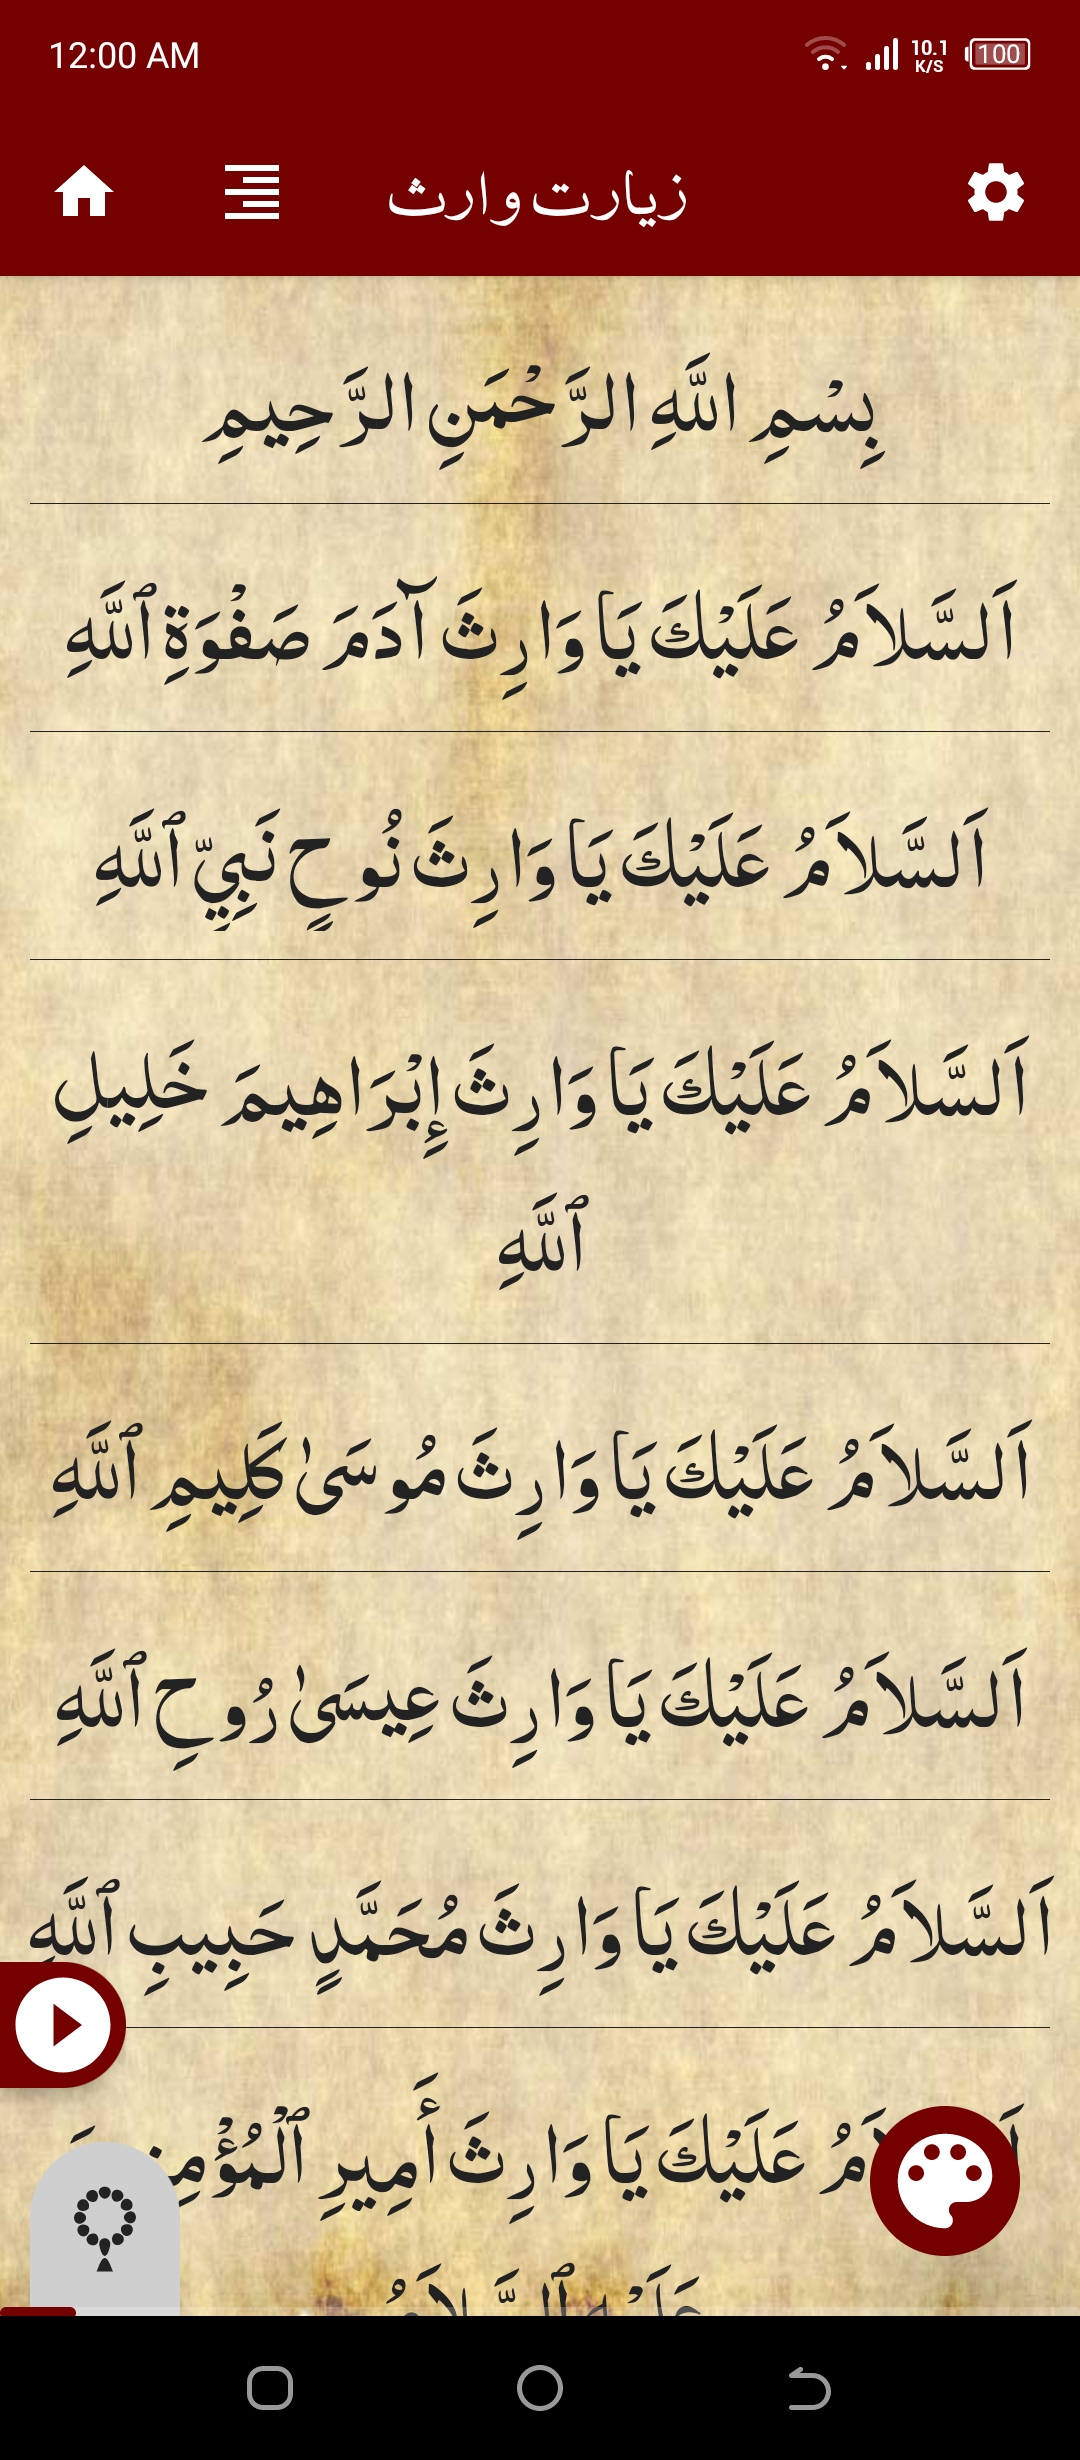 12:00 AM
10.1 K/S
100
زيارت وارث
بِسْمِ اللَّهِ الرَّحْمَنِ الرَّحِيمِ
اَلسَّلاَمُ عَلَيْكَ يَا وَارِثَ آدَمَ صَفْوَةِ ٱللَّهِ
اَلسَّلاَمُ عَلَيْكَ يَا وَارِثَ نُوحٍ نَبِيِّ ٱللَّهِ
اَلسَّلاَمُ عَلَيْكَ يَا وَارِثَ إِبْرَاهِيمَ خَلِيلِ
ٱللَّهِ
اَلسَّلاَمُ عَلَيْكَ يَا وَارِثَ مُوسَىٰ كَلِيمِ ٱللَّهِ
اَلسَّلاَمُ عَلَيْكَ يَا وَارِثَ عِيسَىٰ رُوحِ ٱللَّهِ
اَلسَّلاَمُ عَلَيْكَ يَا وَارِثَ مُحَمَّدٍ حَبِيبِ ٱللَّهِ
عَلَيْكَ يَا وَارِثَ أَمِيرِ